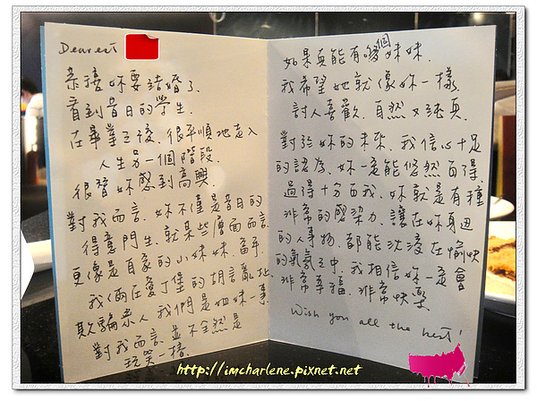 Dearest
亲愛妳要結婚了.
看到昔日的學生.
在畢業之後.很平順地走入
人生另一個階段.
很替妳感到高興.
對我而言.妳不僅是昔日的
得意門生.就某些層面而言.
更像是自家的小妹妹.
我倆在愛丁堡的胡言亂扯.
欺騙眾人我們是姐妹一事.
對我而言.並不全然是
玩笑一樁.
如果真能有個妹妹.
我希望她就像妳一樣.
討人喜歡.自然又純真.
對於妳的未來.我信心十足
的認為.妳一定能悠然而得.
過得十分自我.妳就是有種
非常的感染力.讓在妳身邊
的人事物.都能沈浸在愉快
的氣氛之中.我相信妳一定會
非常幸福.非常快樂.
Wish you all the best!
http://imcharlene.pixnet.net